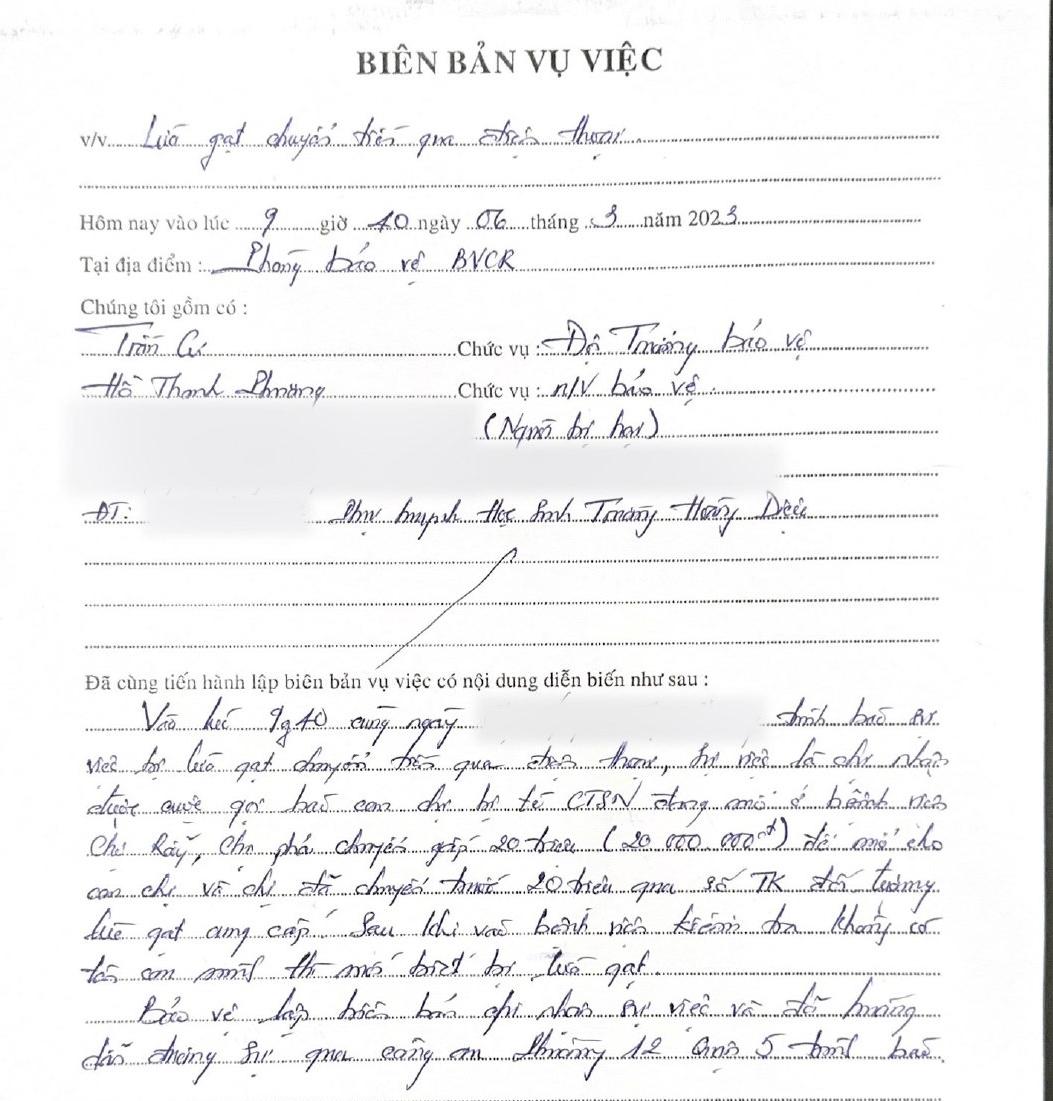 BIÊN BẢN VỤ VIỆC
v/v Lừa gạt chuyển tiền qua điện thoại
Hôm nay vào lúc 9 giờ 40 ngày 06 tháng 3 năm 2023
Tại địa điểm : Phòng bảo vệ BVCR
Chúng tôi gồm có :
Trần Cư Chức vụ : Đội Trưởng bảo vệ
Hồ Thanh Phương Chức vụ : n/v bảo vệ
(Người bị hại)
ĐT: Phụ huynh Học Sinh Trường Hoàng Diệu
Đã cùng tiến hành lập biên bản vụ việc có nội dung diễn biến như sau :
Vào lúc 9g40 cùng ngày trình báo sự
việc bị lừa gạt chuyển tiền qua điện thoại, sự việc là chị nhận
được cuộc gọi báo con chị bị té CTSN đang mổ ở bệnh viện
Chợ Rẫy, Chị phải chuyển gấp 20 triệu (20 000 000đ) để mổ cho
con chị và chị đã chuyển trước 20 triệu qua số TK đối tượng
lừa gạt cung cấp. Sau khi vào bệnh viện kiểm tra không có
tên con mình thì mới biết bị lừa gạt.
Bảo vệ lập biên bản ghi nhận sự việc và đã hướng
dẫn đương sự qua công an Phường 12 Quận 5 trình báo.